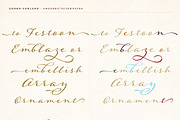 to Festoon
Emblaze or
embellish
Array
Ornament
to Festoon
Emblaze or
embellish
Array
Ornament